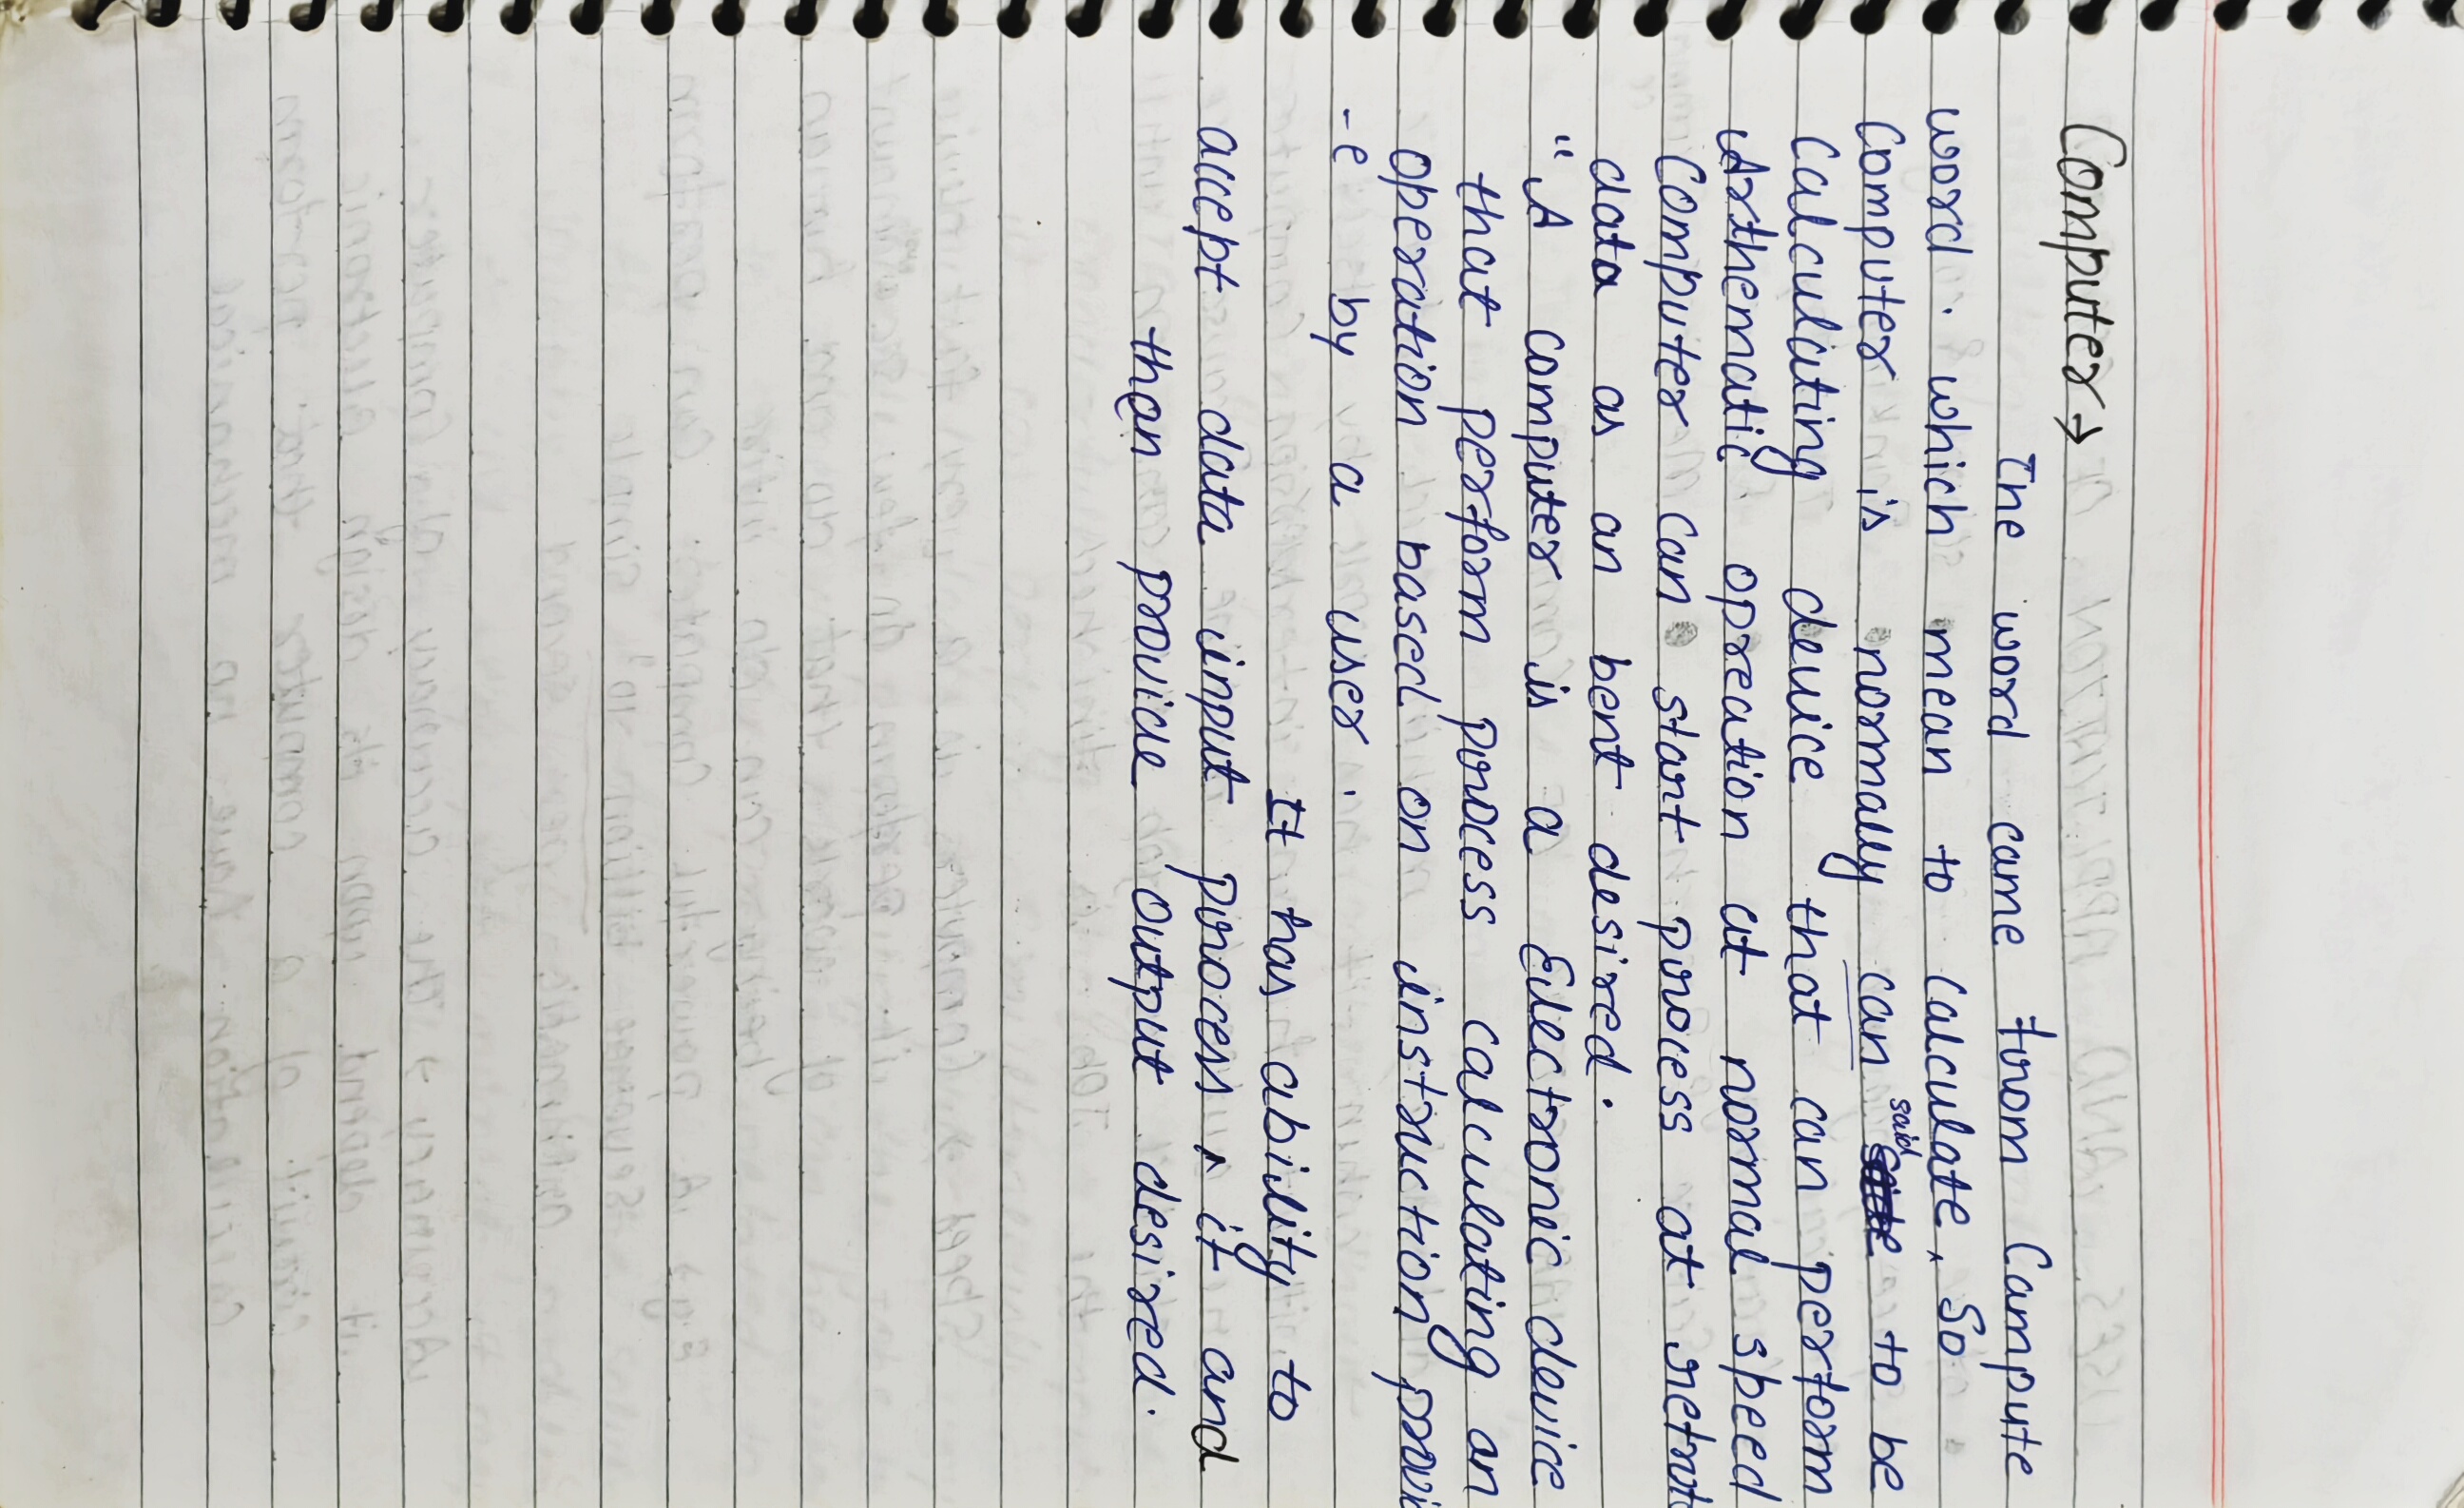 Computer →
The word came from Campute
word. which mean to calculate, So
Computer is normally can said to be
Calculating device that can perform
Arthematic opreation at normal speed
Computer can start process at
data as an bent desired.
" A computer is a Electronic device
that perform process calculating an
operation based on instruction provi
-e by a user.
It has ability to
accept data input process, it and
then provide output desired.